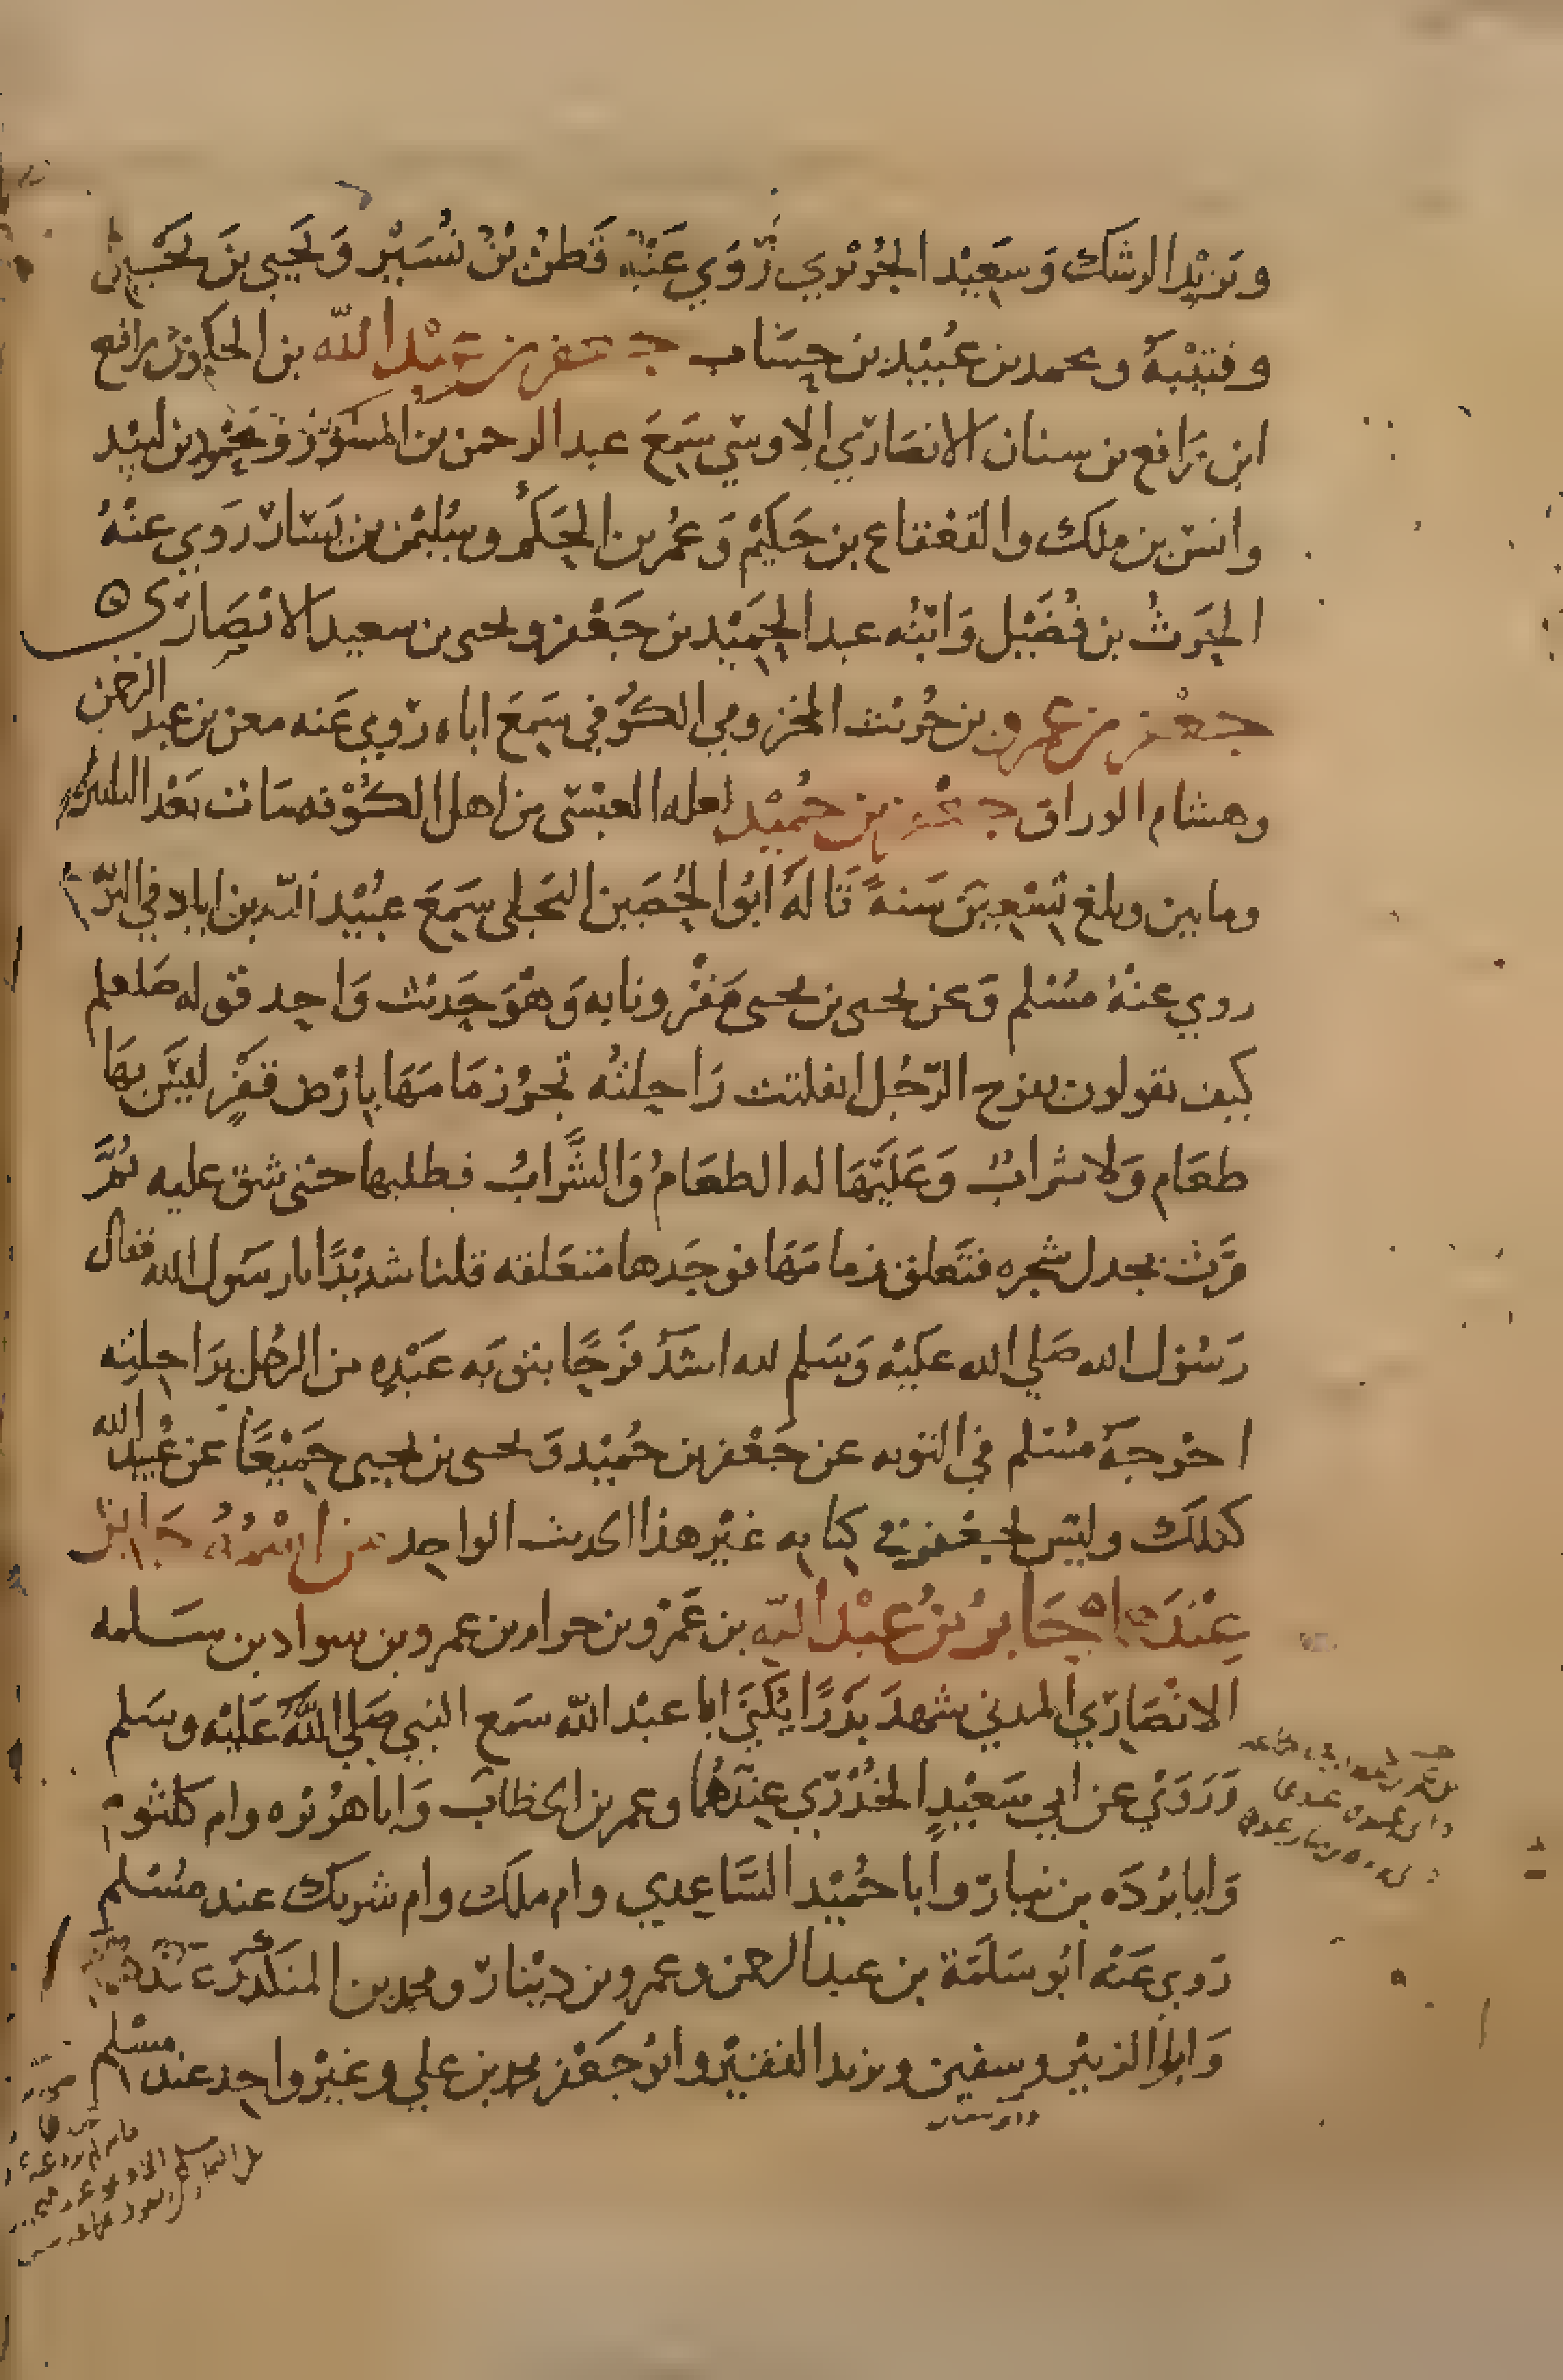 ويزيد الرشك وسعيد الجريري روي عنه قطن بن نسير ويحيي بن يحيى
وقتيبة ومحمد بن عبيد بن حساب جعفر بن عبد الله بن الحكم بن رافع
ابن رافع بن سنان الانصاري الاوسي سمع عبد الرحمن بن المسور ومحمود بن لبيد
وانس بن ملك والقعقاع بن حكيم وعمر بن الحكم وسليمن بن يسار روي عنه
الحرث بن فضيل وابنه عبد الحميد بن جعفر ويحيى بن سعيد الانصاري
جعفر بن عمرو بن حريث المخزومي الكوفي سمع اباه روي عنه معن بن عبد الرحمن
وهشام الوراق جعفر بن حميد لعله العبسي من اهل الكوفه مات بعد الثلثين
ومايين وبلغ تسعين سنة قاله ابو الحصين البجلي سمع عبيد الله بن اياد في
روي عنه مسلم وعن يحيى بن يحيى مقرونا به وهو حديث واحد قوله صلعلم
كيف تقولون بفرح الرجل انفلتت راحلته تجر زمامها بارض قفر ليس بها
طعام ولا شراب وعليها له الطعام والشراب فطلبها حتى شق عليه ثم
مرت بجدل شجره فتعلق زمامها فوجدها متعلقه قلنا شديدا يا رسول الله فقال
رسول الله صلي الله عليه وسلم لله اشد فرحا بتوبه عبده من الرجل براحلته
اخرجه مسلم في التوبه عن جعفر بن حميد ويحيى بن يحيى جميعا عن عبيد الله
كذلك وليس لجعفر في كتابه غير هذا الحديث الواحد من اسمه جابر
عندهما جابر بن عبد الله بن عمرو بن حرام بن عمرو بن سواد بن سلمه
الانصاري المدني شهد بدرا يكنى ابا عبد الله سمع النبي صلي الله عليه وسلم
وروي عن ابي سعيد الخدري عندهما وعمر بن الخطاب وابا هريره وام كلثوم
وابا برده بن نيار وابا حميد الساعدي وام ملك وام شريك عند مسلم
روي عنه ابو سلمة بن عبد الرحمن وعمرو بن دينار ومحمد بن المنكدر عندهما
وابو الزبير وسفين ويزيد الفقير وابو جعفر محمد بن علي وغير واحد عند مسلم